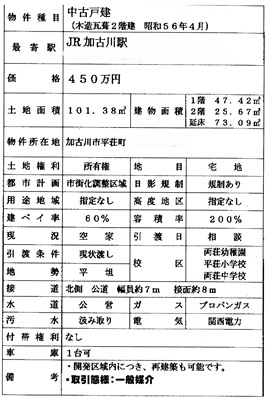 物件種目 中古戸建
(木造瓦葺2階建 昭和56年4月)
最寄駅 JR加古川駅
価格 450万円
土地面積 101.38㎡ 建物面積 1階 47.42㎡
2階 25.67㎡
延床 73.09㎡
物件所在地 加古川市平荘町
土地権利 所有権 地目 宅地
都市計画 市街化調整区域 日影規制 規制あり
用途地域 指定なし 高度地区 指定なし
建ペイ率 60% 容積率 200%
現況 空家 引渡日 相談
引渡条件 現状渡し 校区 両荘幼稚園
平荘小学校
両荘中学校
地勢 平坦
接道 北側 公道 幅員約7m 接面約8m
水道 公営 ガス プロパンガス
汚水 汲み取り 電気 関西電力
付帯権利 なし
車庫 1台可
備考 ・開発区域内につき、再建築も可能です。
・取引態様：一般媒介